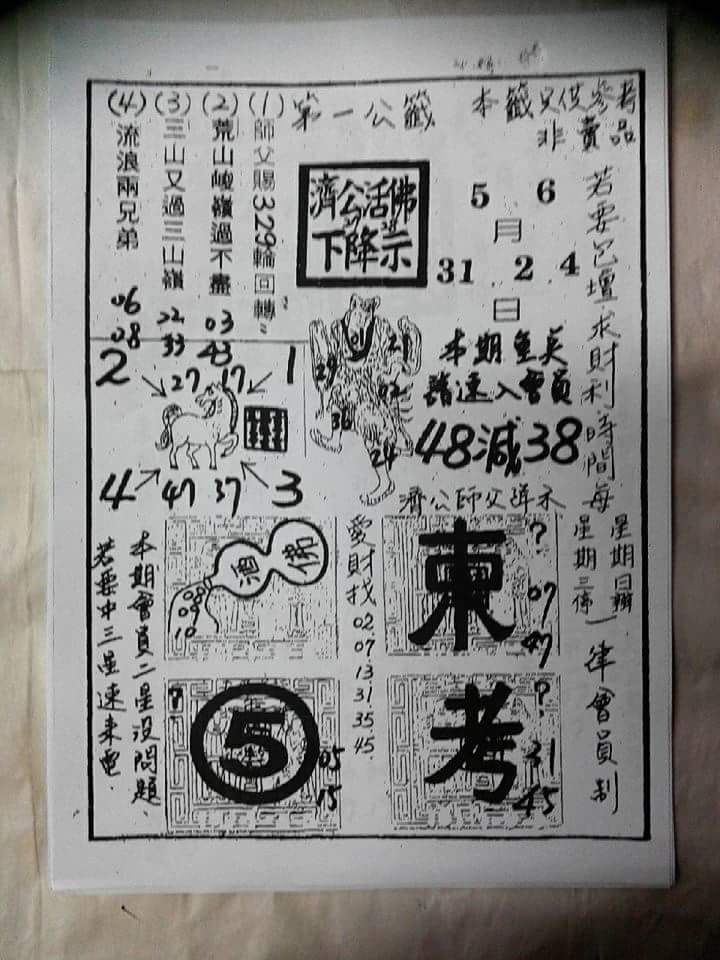 本籤只供參考
非賣品
第一公籤
(1) 師父賜329輪回轉
(2) 荒山峻嶺過不盡
(3) 三山又過三山嶺
(4) 流浪兩兄弟
03
43
22
33
06
08
濟公活佛
下降示
5 6
月
31 2 4
日
若要包壇求財利時間每
星期日辦
星期三停
一律會員制
本期
請速入會員
48減38
01
21
29
02
36
24
2
1
27 17
4
3
47 37
濟公師父詳示
佛
酒
08
09
10
愛財找
02
07
13
31
35
45
東
?
07
47
?
5
05
15
考
?
31
45
本期會員二星没問題、
若要中三星速來電.